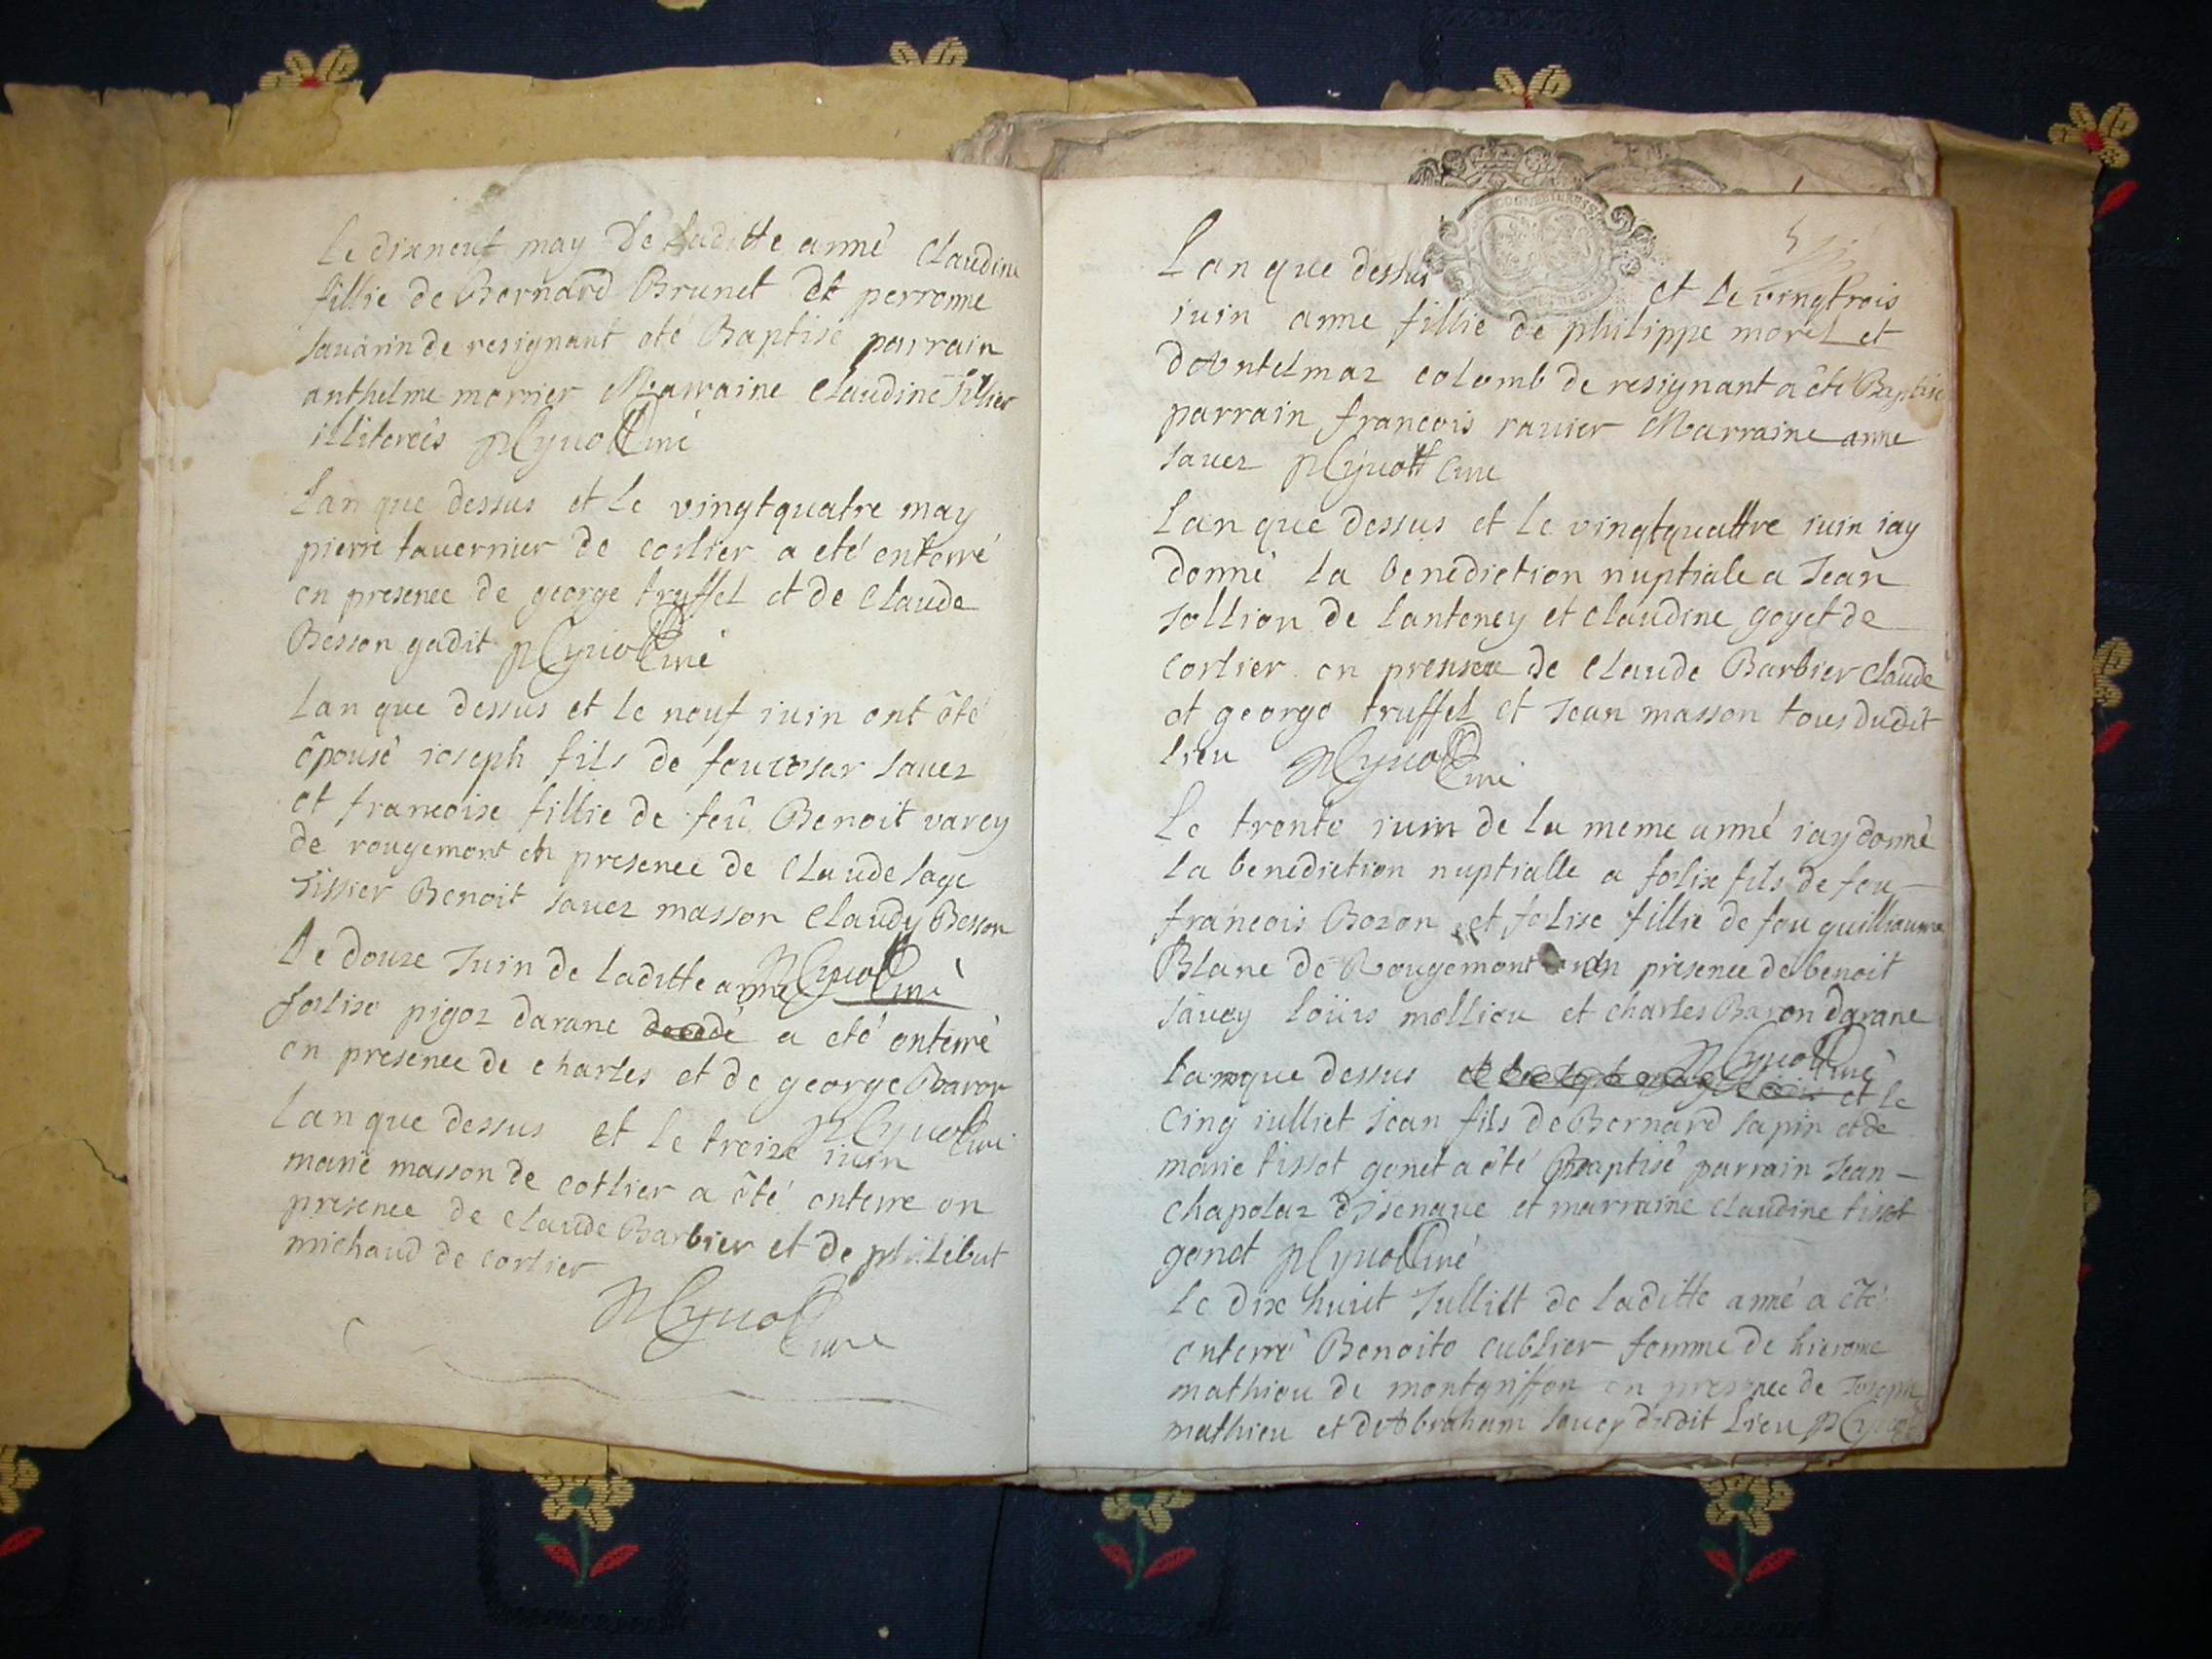 Le dixneuf may de laditte anné Claudine
fillie de Bernard Brunet et perronne
savarin de resignant oté Baptisé parrain
anthelme morrier Marraine Claudine
illiterés curé
Lan que dessus et le vingtquatre may
pierre tavernier de corlier a eté enterré
en presence de george truffel et de Claude
Besson gadit curé
Lan que dessus et le neuf iuin ont ôté
êpousé ioseph fils de feu cesar savez
et francoise fillie de feû Benoit varey
de rougemont en presence de Claude sage
Tissier Benoit savez masson Claudy Besson
Le douze Juin de laditte anné curé
felise pigoz darane a eté enterré
en presence de charles et de george Baron
Lan que dessus et le treize iuin curé
marie masson de corlier a êté enterre en
presence de claude Barbier et de philibut
michaud de corlier
cure
5
Lan que dessus et le vingtrois
iuin anne fillie de philippe morel et
dAntelmaz colomb de resignant a êté Baptise
parrain francois ravier Marraine anne
savez cure
Lan que dessus et le vingtquattre iuin iay
donné la benediction nuptiale a Jean
Jollion de lanteney et claudine goyet de
corlier en presence de claude Barbier Claude
et george truffel et Jean masson tous dudit
lieu curé
Le trente iuin de la meme anné iay donné
la benediction nuptialle a felix fils de feu
francois Bozon et felise fillie de feu guilliaume
Blanc de Rougemont en presence de benoit
savey loüis mollieu et charles Baron darane
curé
Lan que dessus et le
cinq iulliet Jean fils de Bernard sapin et de
marie tissot genet a êté Baptisé parrain Jean
chapolaz disenave et marraine claudine tissot
genet curé
Le dix huit Julliet de laditte anné a êté
enterré Benoite cublier femme de hierome
mathieu de montgriffon en presence de Joseph
mathieu et dAbraham savey dudit lieu